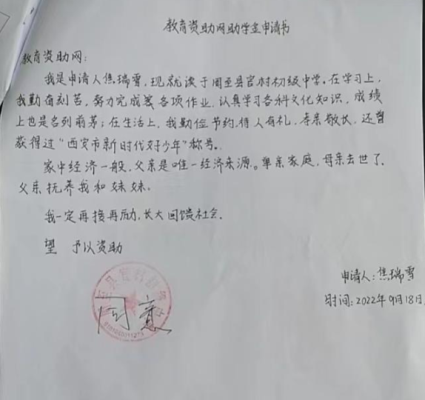 教育资助网助学金申请书
教育资助网:
我是申请人焦瑞雪,现就读于周至县官村初级中学。在学习上,
我勤奋刻苦,努力完成各项作业,认真学习各科文化知识,成绩
上也是名列前茅;在生活上,我勤俭节约,待人有礼,孝亲敬长,还曾
获得过“西安市新时代好少年”称号。
家中经济一般,父亲是唯一经济来源。单亲家庭,母亲去世了。
父亲抚养我和妹妹。
我一定再接再励,长大回馈社会。
望 予以资助
同意
申请人:焦瑞雪
时间:2022年9月18日